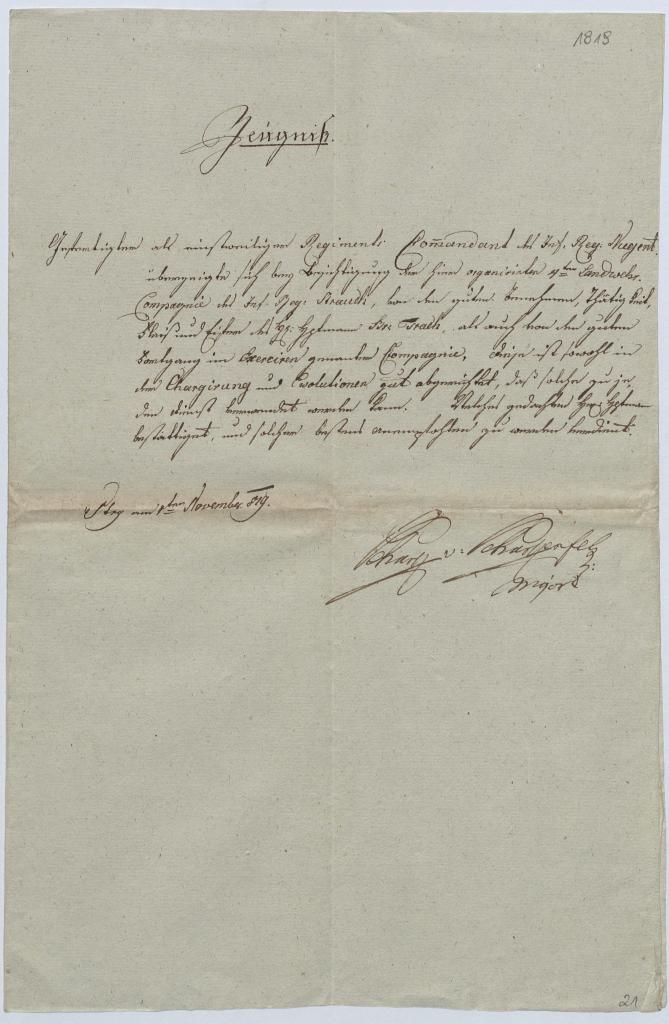 1819
Zeugniß.
Gefertigter als einstweiliger Regiments Commandant des Inf. Reg. Nugent.
überzeugte sich bey Besichtigung der hier organisirten 4ten Landwehr
Compagnie des Inf. Reg: Strauch, von den guten Benehmen, Thätigkeit,
Fleiß und Eifer des H: Hptmann Br: , als auch von den guten
Fortgang im Exerciren genannter Compagnie, diese ist sowohl in
der Chargirung und Evolutionen gut abgerichtet, daß solche zu je,
den Dienst verwendet werden kann. Welches gedachten Hptmann
bestättiget, und solcher bestens anempfohlen zu werden verdient.
am 1ten November 819.
v: Scharfenfels
Major
21